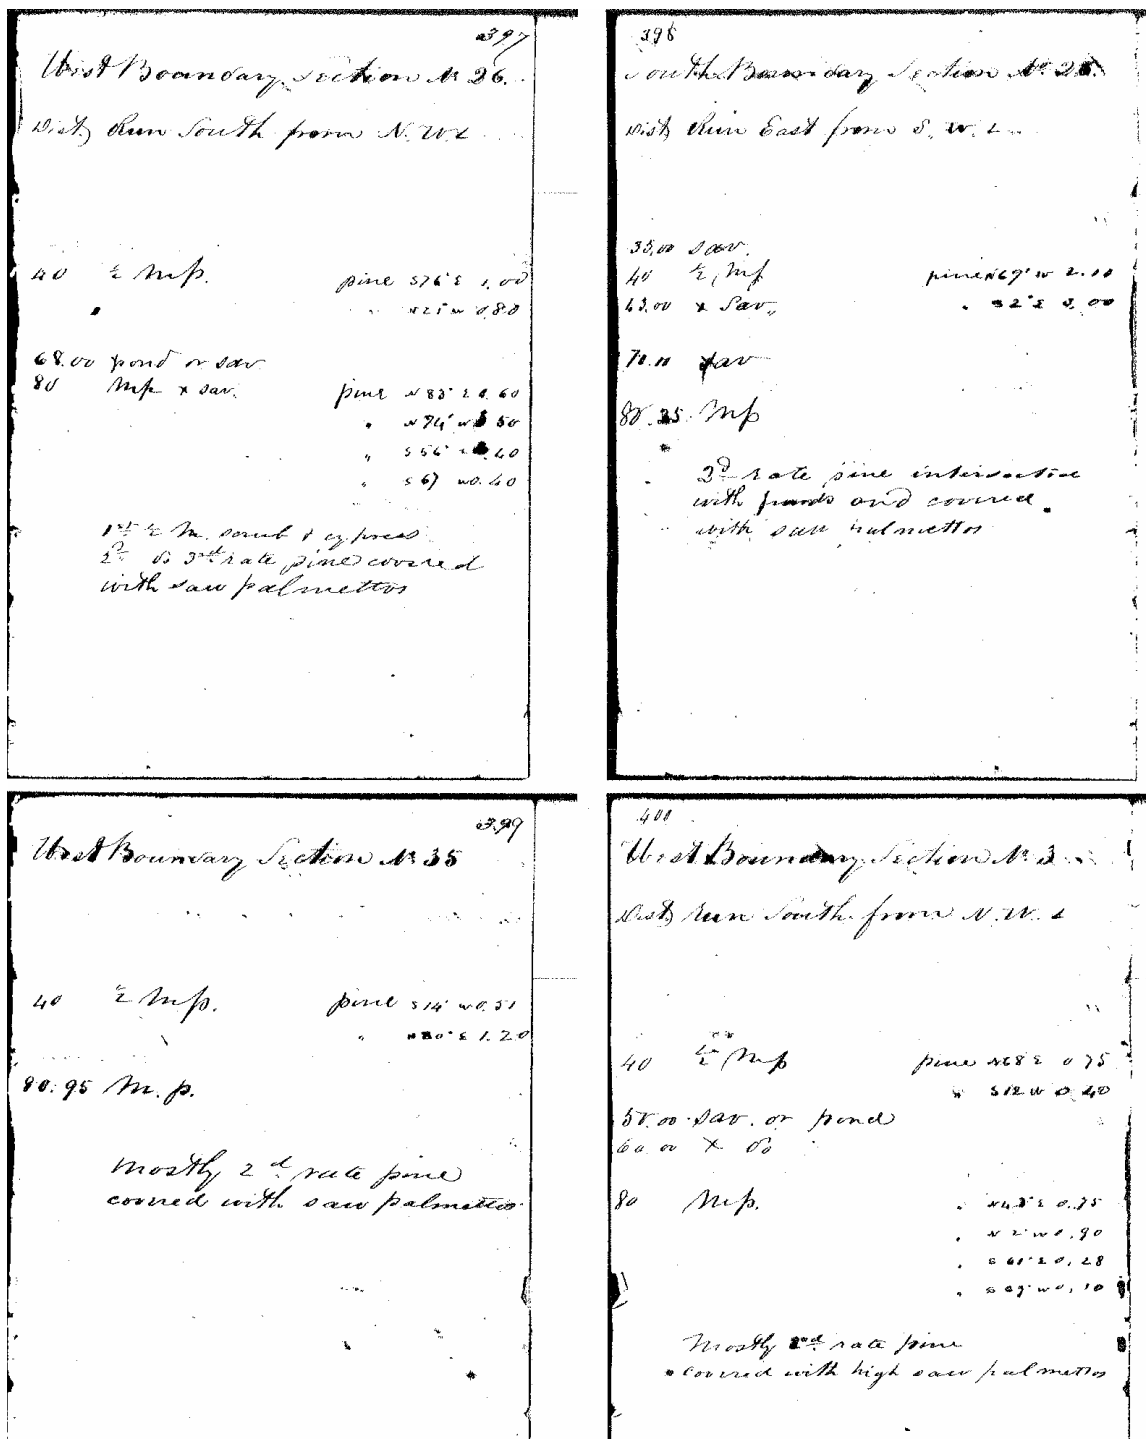 397
West Boundary Section № 26.
Dist, Run South from N.W.
40 ½ M.p. pine S76°E 1.00
" N21°W 0.80
68.00 pond or sav
80 M.p. x sav. pine N83°E 0.60
" N74°W 50
" S56° 40
" S67 W0.40
1st ½ M. scrub & cypress
2d do 3rd rate pine covered
with saw palmettos
398
South Boundary Section №
Dist, Run East from S. W.
35.00 sav.
40 ½ M.p pine N69°W 2.10
63.00 x Sav. " S2°E 3.00
70.00 sav
80.35 M.p
3d rate pine
with ponds and covered
with saw palmettos
399
West Boundary Section № 35
40 ½ M.p. pine S14°W 0.51
" N80°E 1.20
80.95 M. p.
Mostly 2d rate pine
covered with saw palmettos
400
West Boundary Section № 3
Dist, Run South from N.W.
40 ½ M.p pine N68 E 0 75
" S12 W 0.40
50.00 sav. or pond
60.00 x do
80 M.p. " N43°E 0.75
" N2°W 0.90
" S61°E 0,28
" W0,10
Mostly 2nd rate pine
covered with high saw palmettos